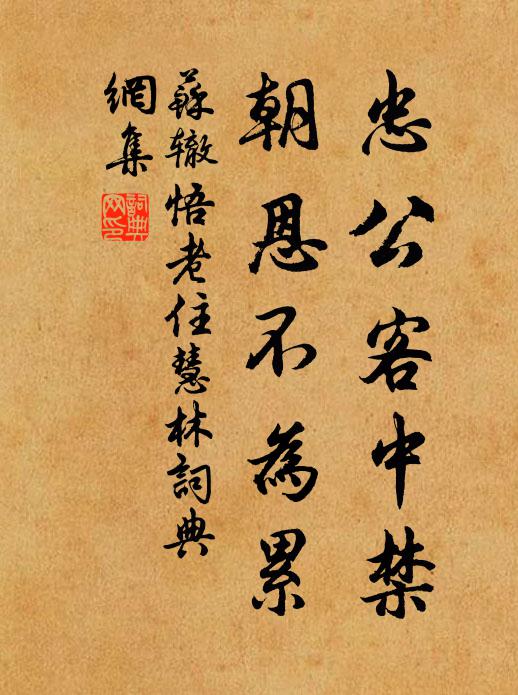 忠公客中禁
朝恩不為累
蘇辙悟老住慧林詞典
網集
詞典
网印